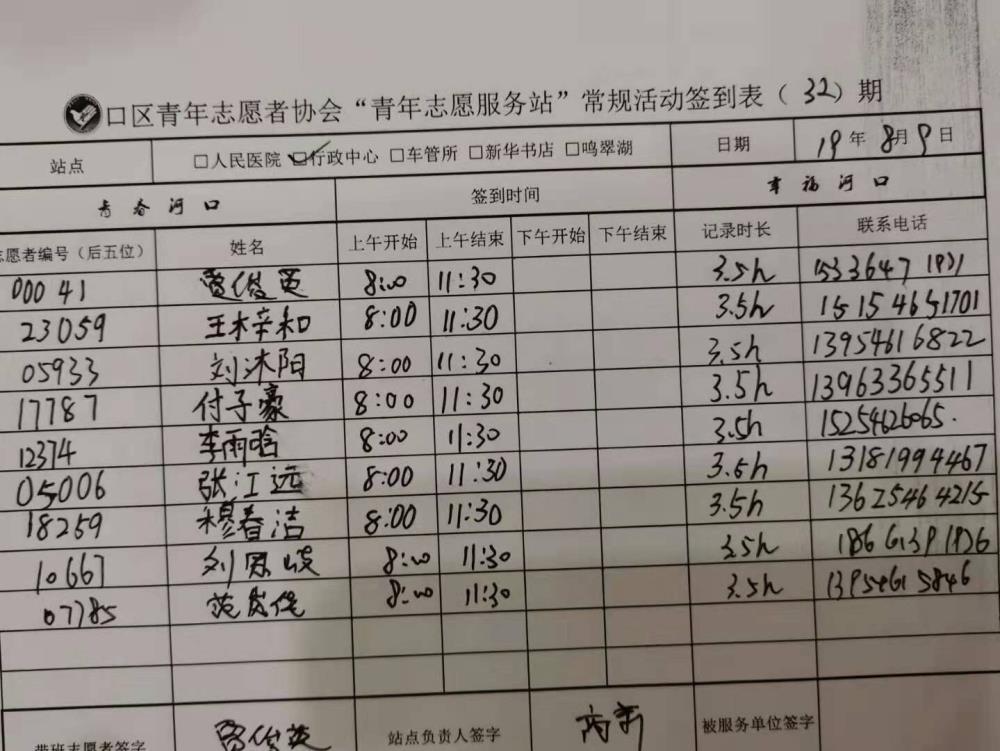 口区青年志愿者协会“青年志愿服务站”常规活动签到表（32）期
站点 □人民医院 ☑行政中心 □车管所 □新华书店 □鸣翠湖 日期 19年8月9日
青春河口 签到时间 幸福河口
志愿者编号（后五位） 姓名 上午开始 上午结束 下午开始 下午结束 记录时长 联系电话
00041 贾俊英 8:00 11:30 3.5h
23059 王梓和 8:00 11:30 3.5h 15154651701
05933 刘沐阳 8:00 11:30 3.5h 13954616822
17787 付子豪 8:00 11:30 3.5h 13963365511
12374 李雨晗 8:00 11:30 3.5h 15254626065.
05006 张江远 8:00 11:30 3.5h 13181994467
18259 穆春洁 8:00 11:30 3.5h 13625464215
10667 8:00 11:30 3.5h
07785 8:00 11:30 3.5h 13954615846
带班志愿者签字 贾俊英 站点负责人签字 被服务单位签字